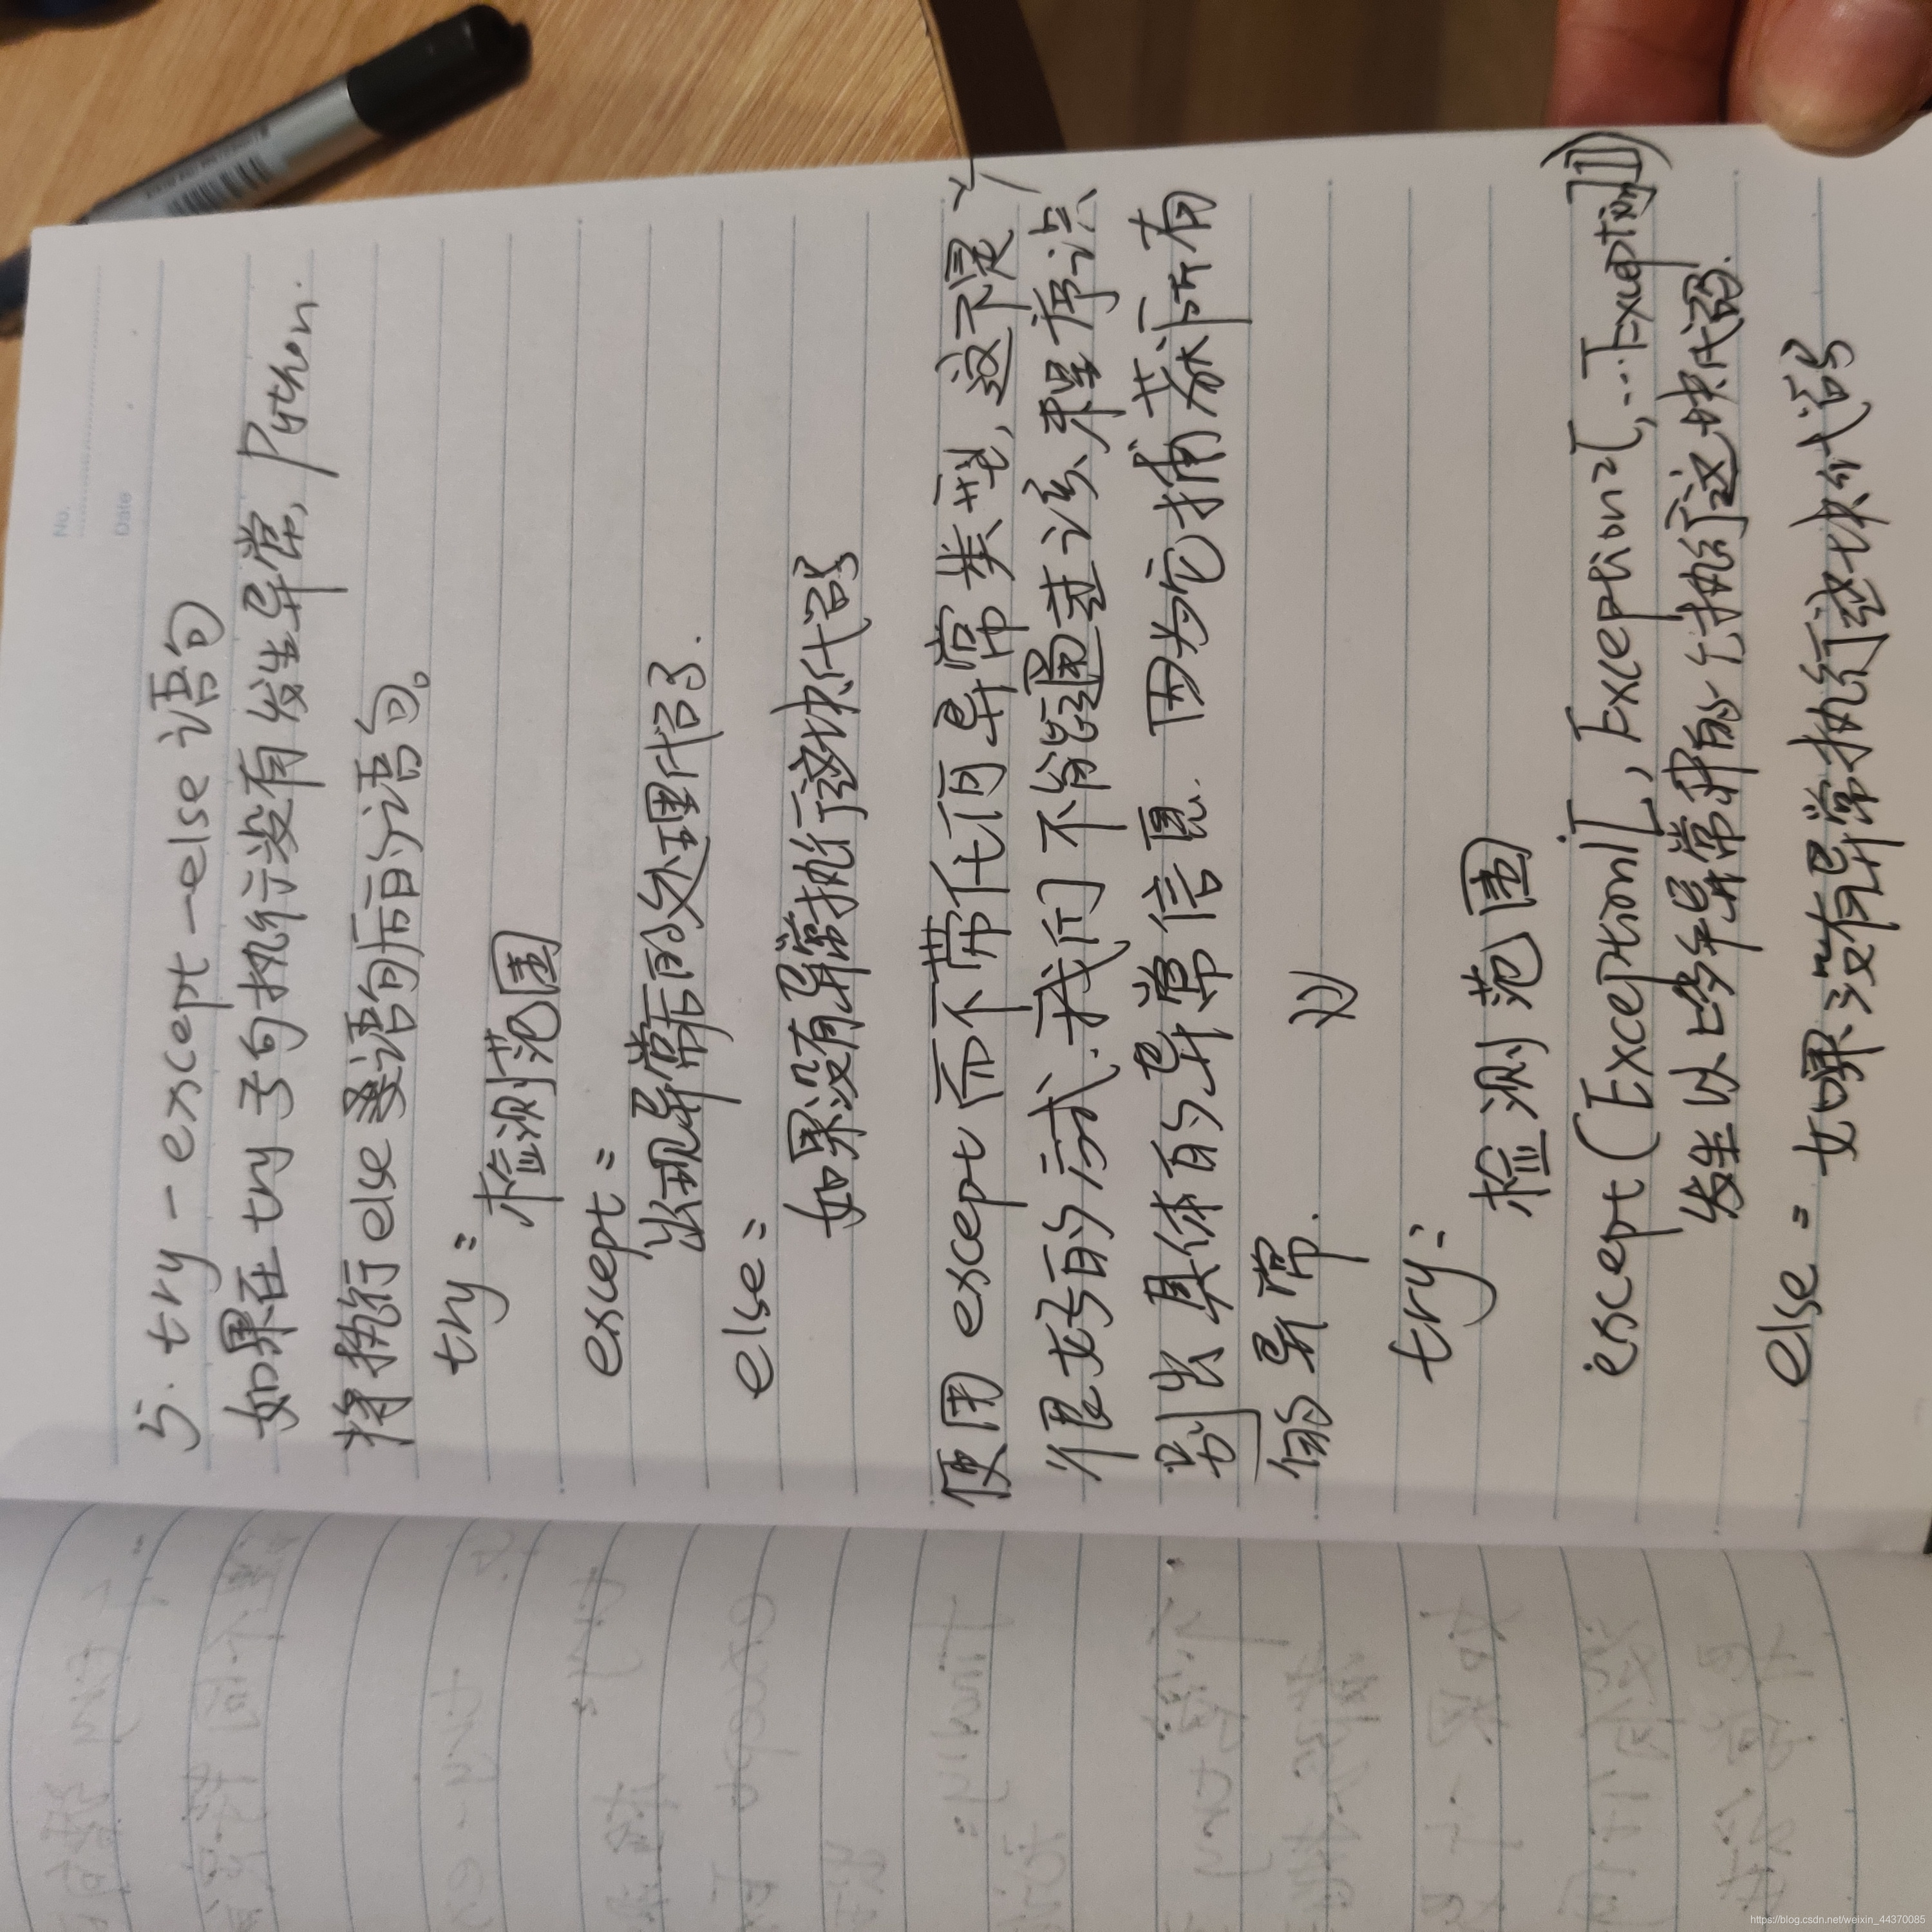 No.
Date
5. try - except - else 语句
如果在 try 子句执行没有发生异常, Python
将执行 else 语句后的语句。
try:
检测范围
except:
出现异常后的处理代码.
else:
如果没有异常执行这块代码
使用 except 而不带任何异常类型, 这不是一
个很好的方式, 我们不能通过该程序识
别出具体的异常信息. 因为它捕获所有
的异常.
try:
检测范围
except(Exception1[, Exception2[,...Exception]]])
发生以上多个异常中的一个执行这块代码.
else: 如果没有异常执行这块代码
https://blog.csdn.net/weixin_44370085